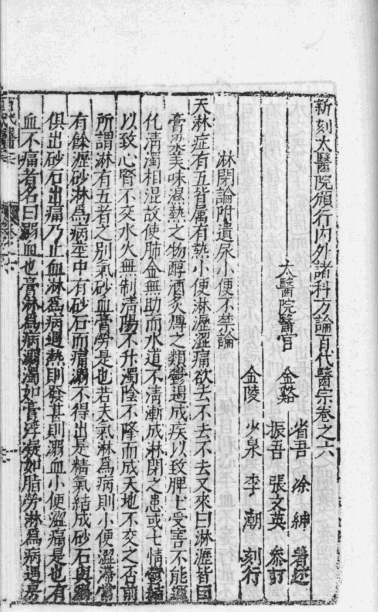 新刻太醫院頒行內外諸科方論百代醫宗卷之六
太醫院醫官 金谿 省吾 涂紳 著述
振吾 張文英 參訂
金陵 少泉 李潮 刻行
淋閉論附遺尿小便不禁論
夫淋症有五皆属有熱小便淋瀝澀痛欲去不去不去又來曰淋瀝皆因
膏粱美味濕熱之物醇酒炙煿之類鬱遏成疾以致脾土受害不能運
化清濁相混故使肺金無助而水道不清漸成淋閉之患或七情鬱結
以致心腎不交水火無制清陽不升濁陰不降而成天地不交之否前
所謂淋有五者之别氣砂血膏勞是也若夫氣淋爲病則小便澀滯常
有餘瀝砂淋爲病莖中有砂石而痛溺不得出是精氣結成砂石與溺
俱出砂石出痛乃止血淋爲病遇熱則發甚則溺血小便澀痛是也有
血不痛者名曰溺血也膏淋爲病溺濁如膏浮凝如脂勞淋爲病遇房